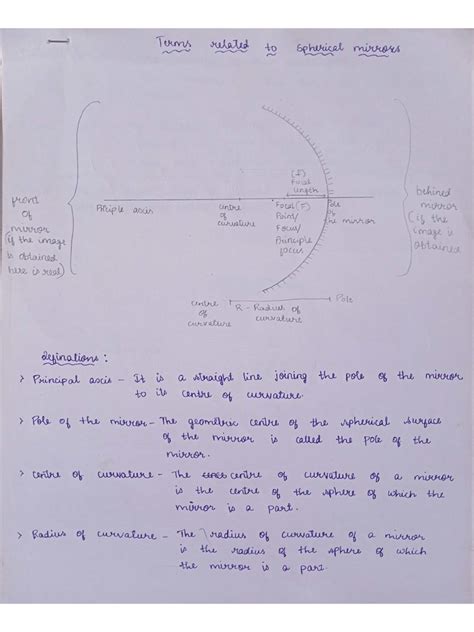 Terms related to spherical mirrors
front
of
mirror
(if the image
is obtained
here is real)
Priciple axis
centre
of
curvature
(f)
Focal
length
Focal (F)
Point/
Focus/
Principle
focus
Pole
of
the mirror
behined
mirror
(if the
image is
obtained
centre
of
curvature
R - Radius of
curvature
Pole
definations :
> Principal axis - It is a straight line joining the pole of the mirror
to its centre of curvature.
> Pole of the mirror - The geometric centre of the spherical surface
of the mirror is called the pole of the
mirror.
> Centre of curvature - The centre of curvature of a mirror
is the centre of the sphere of which the
mirror is a part.
> Radius of curvature - The radius of curvature of a mirror
is the radius of the sphere of which
the mirror is a part.